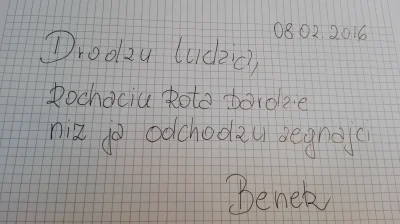 08.02.2016
Drodzy ludzie,
kochaciu kota bardzie
niż ja odchodzu żegnajci
Benek